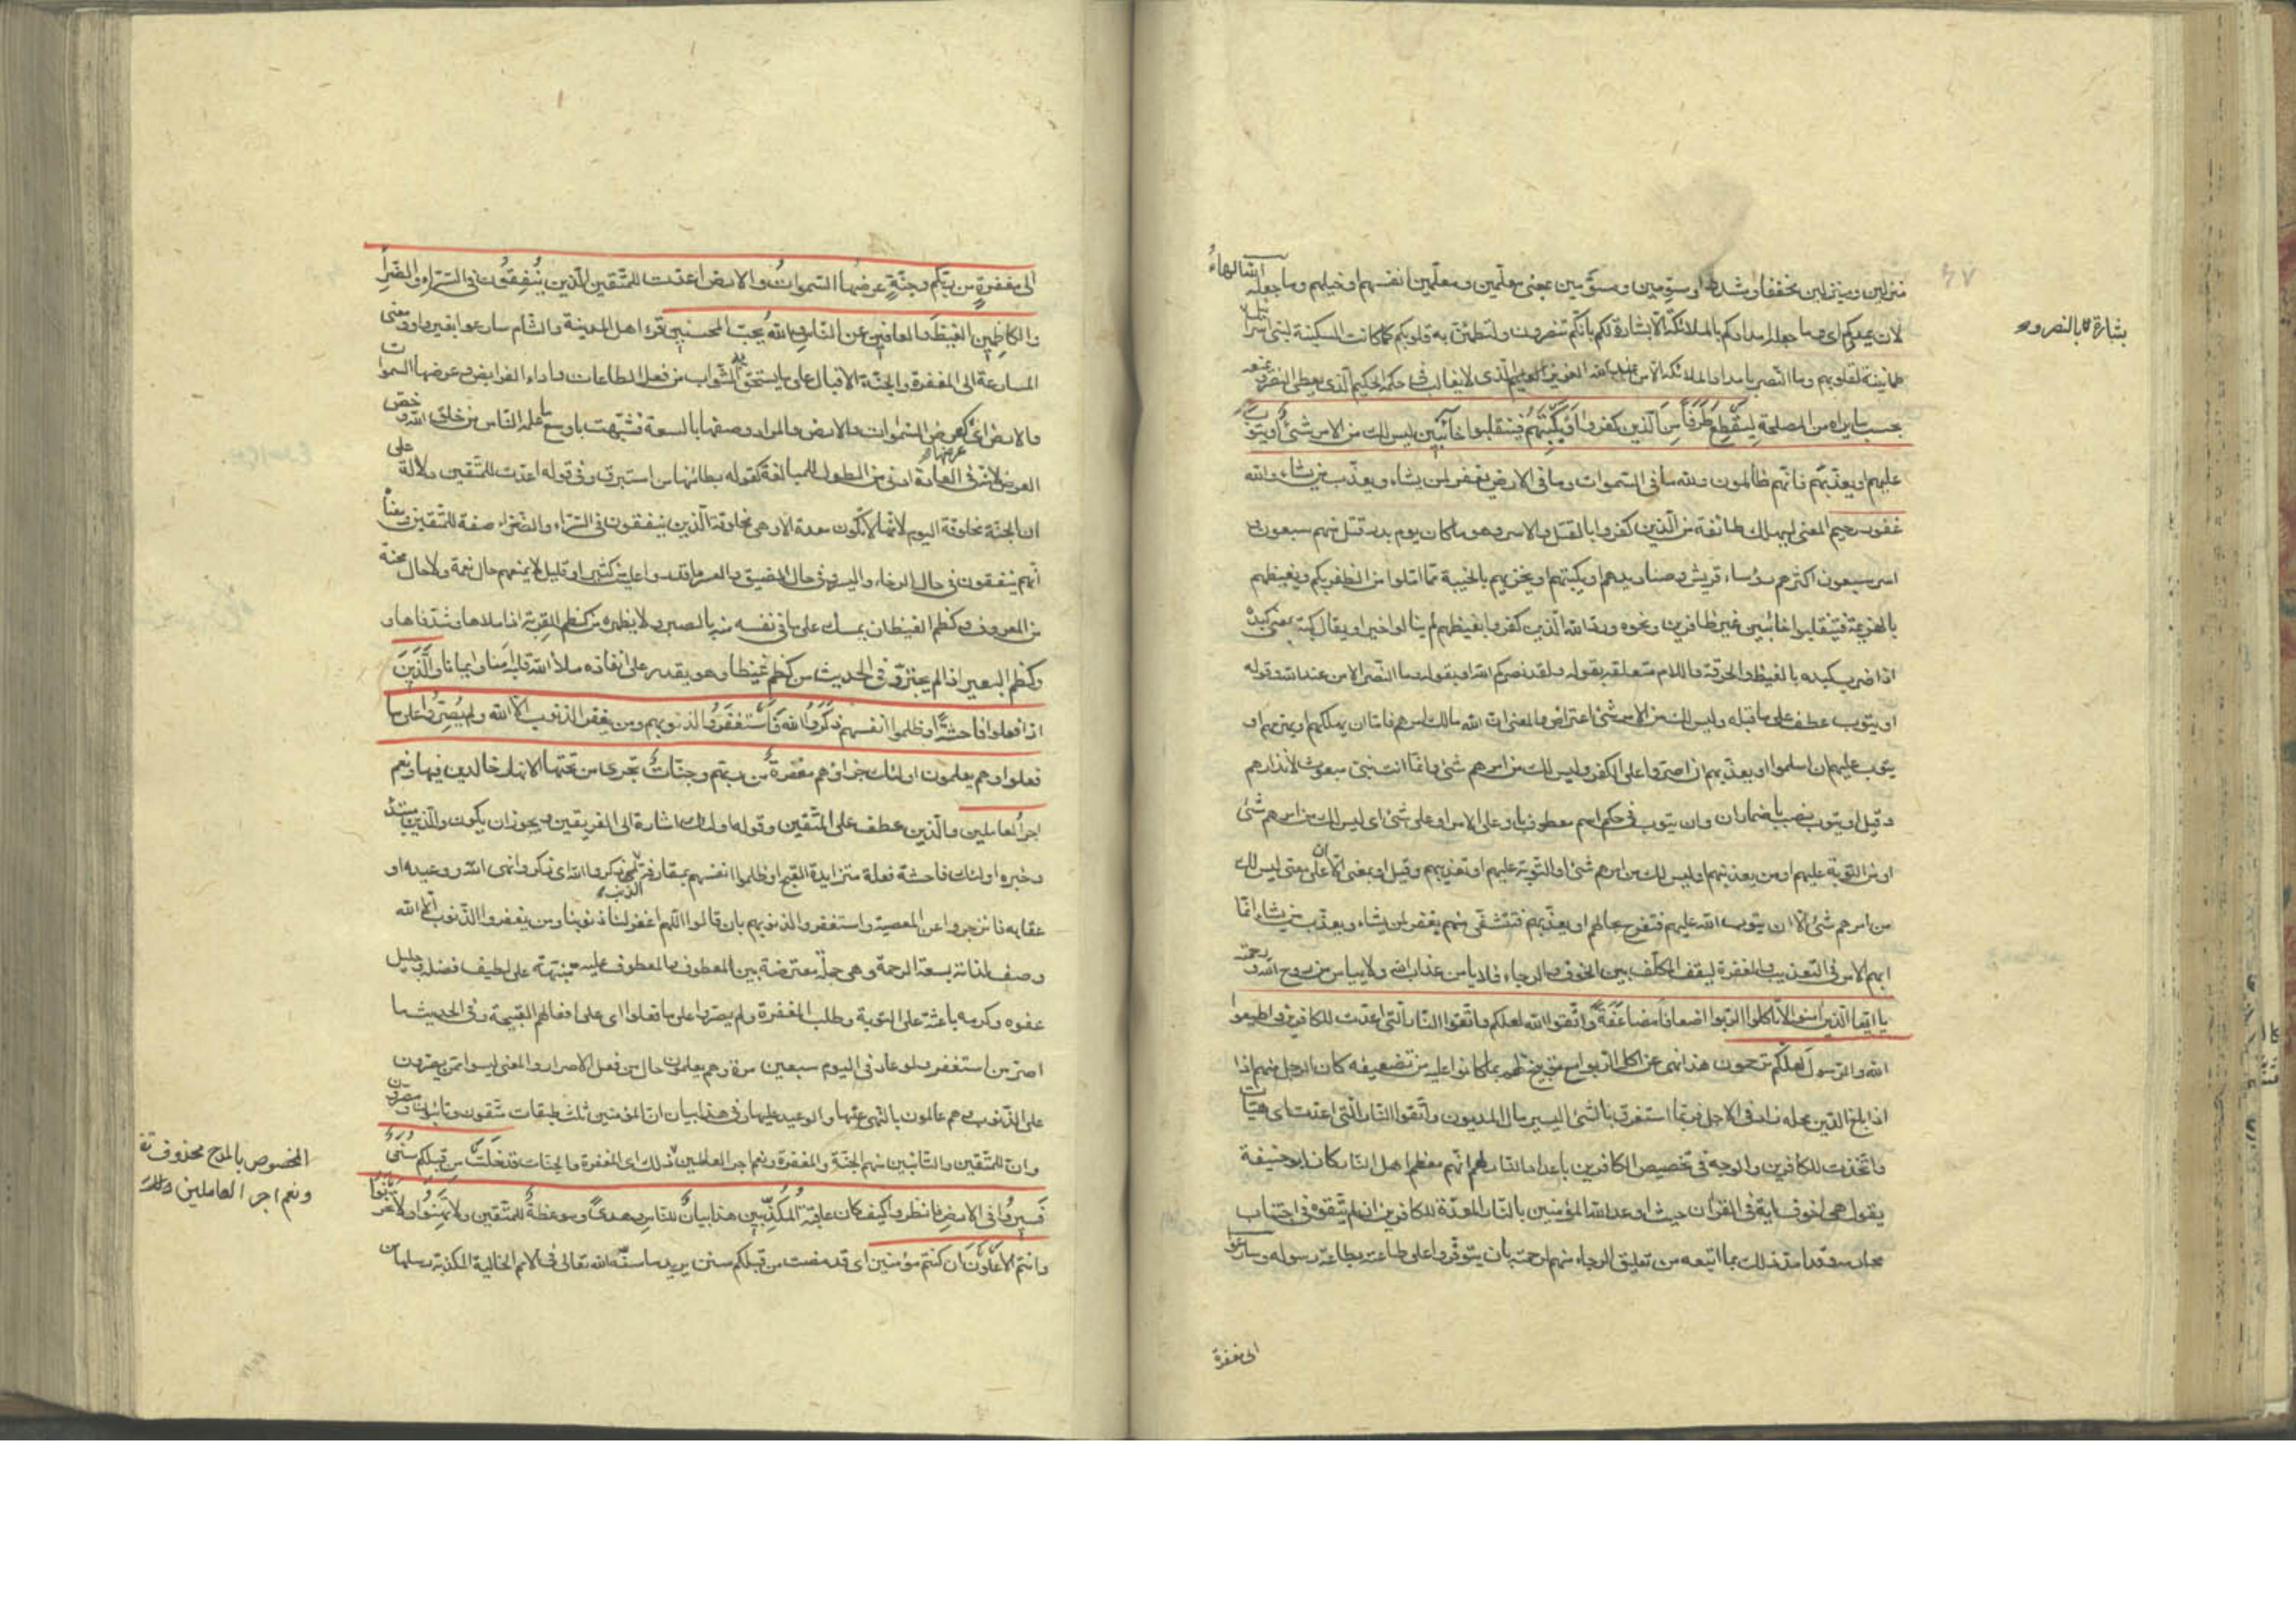 منزلين ومنزلين مخففا ومشددا ومسوّمين ومسوّمين بمعنى معلّمين ومعلّمين انفسهم او خيلهم وما جعله الله الهاء
لان يمدكم اى وما جعل امدادكم بالملائكة الّا بشارة لكم بانّكم تنصرون ولتطمئنّ به قلوبكم كما كانت السكينة لبنى اسرائيل
بشارة لكم بالنصر و
طمانينة لقلوبهم وما النّصر بامداد الملائكة الّا من عند الله العزيز الّذى لا يغالب فى حكمه الحكيم الّذى يعطى النصر ويمنعه
بحسب ما يراه من المصلحة لِيَقْطَعَ طَرَفًا مِنَ الّذين كفروا اَوْ يَكْبِتَهُمْ فينقلبوا خائبين ليس لك من الامر شئ او يتوب
عليهم او يعذّبهم فانّهم ظالمون ولله ما فى السّموات وما فى الارض يغفر لمن يشاء ويعذّب من يشاء والله
غفور رحيم المعنى ليهلك طائفة من الّذين كفروا بالقتل والاسر وهو ما كان يوم بدر قتل منهم سبعون و
اسر سبعون اكثرهم رؤساء قريش وصناديدهم او يكبتهم او يخزيهم بالخيبة ممّا امّلوا من الظفر بكم ويغيظهم
بالهزيمة فينقلبوا خائبين غير ظافرين ونحوه وردّ الله الّذين كفروا بغيظهم لم ينالوا خيرا ويقال كبته بمعنى كبده
اذا ضرب كبده بالغيظ والحرقة واللام متعلقة بقوله ولقد نصركم الله او بقوله وما النّصر الا من عند الله وقوله
او يتوب عطف على ما قبله وليس لك من الامر شئ اعتراض والمعنى انّ الله مالك امرهم فامّا ان يهلكهم او يهزمهم او
يتوب عليهم ان اسلموا او يعذّبهم ان اصرّوا على الكفر وليس لك من امرهم شئ وانّما انت نبىّ مبعوث لانذارهم
وقيل او يتوب نصب باضمار ان وان يتوب فى حكم اسم معطوف باو على الامر او على شئ اى ليس لك من امرهم شئ
او من التّوبة عليهم او من تعذيبهم او ليس لك من امرهم شئ او التّوبة عليهم او تعذيبهم وقيل او بمعنى الّا ان على معنى ليس لك
من امرهم شئ الّا ان يتوب الله عليهم فتفرح بحالهم او يعذّبهم فتتشفّى منهم يغفر لمن يشاء ويعذّب من يشاء انّما
ابهم الامر فى التعذيب والمغفرة ليقف المكلّف بين الخوف والرجاء فلا يامن عذاب الله ولا ييأس من روح الله ورحمته
يا ايّها الّذين آمنوا لا تاكلوا الرّبوا اضعافا مُضَاعَفَةً واتّقوا الله لعلكم واتّقوا النّار الّتى اعدّت للكافرين واطيعوا
الله والرّسول لعلّكم ترحمون هذا نهى عن اكل الرّبوا مع توبيخ لهم بما كانوا عليه من تضعيفه كان الرجل منهم اذا
اذا بلغ الدّين محله زاد فى الاجل فربّما استغرق بالشئ اليسير مال المديون واتّقوا النّار الّتى اعدّت اى هيّأت
واتّخذت للكافرين والوجه فى تخصيص الكافرين باعداد النّار لهم انّهم معظم اهل النّار كان ابو حنيفة
يقول هى اخوف اية فى القرآن حيث اوعد الله المؤمنين بالنّار المعدّة للكافرين ان لم يتّقوه فى اجتناب
محارمه وقد امدّ ذلك بما اتبعه من تعليق الرجاء منهم لرحمته بان يتوفّروا على طاعته وطاعة رسوله وسارعوا
الى مغفرة
الى مغفرةٍ من ربّكم وجنّةٍ عرضها السّمواتُ والارض اعدّت للمتّقين الّذين يُنْفِقُونَ فى السّرّاء والضّرّاء
والكاظِمين الغيظَ والعافين عن النّاس والله يُحبّ المحسنين قرء اهل المدينة والشّام سارعوا بغير واو ومعنى
المسارعة الى المغفرة والجنّة الاقبال على ما يستحقّ به الثّواب من فعل الطاعات واداء الفرايض وعرضها السموات
والارض اى كعرض السّموات والارض والمراد وصفها بالسعة فشبّهت باوسع ما علمه النّاس من خلق الله وخصّ
العرض لانّه فى العادة ادنى من الطول للمبالغة كقوله بطائنها من استبرق وفى قوله اعدّت للمتّقين دلالة على
ان الجنّة مخلوقة اليوم لانّها لا تكون معدة الّا وهى مخلوقة الّذين ينفقون فى السّرّاء والضّرّاء صفة للمتّقين ومعناه
انّهم ينفقون فى حال الرخاء واليسر وفى حال الضيق والعسر ما قدروا عليه كثير او قليل لا يمنعهم حال نعمة ولا حال محنة
من المعروف وكظم الغيظ ان يمسك على ما فى نفسه منه بالصبر ولا يظهره من كظم القربة اذا ملاها وشدّ فاها و
وكظم البعير اذا لم يجترّ وفى الحديث من كظم غيظا وهو يقدر على انفاذه ملأ الله قلبه امنا وايمانا وَالَّذِينَ
اذا فعلوا فاحشةً او ظلموا انفسهم ذكَرُوا الله فَاسْتَغْفَرُوا لذنوبهم ومن يغفر الذنوب الّا الله ولم يُصِرّوا على ما
فعلوا وهم يعلمون اولئك جزاؤهم مغفرةٌ من ربّهم وجنّاتٌ تجرى من تحتها الانهار خالدين فيها ونعم
اجرُ العاملين والّذين عطف على المتّقين وقوله اولئك اشارة الى الفريقين ويجوز ان يكون والّذين مبتدأ
وخبره اولئك فاحشة فعلة متزايدة القبح او ظلموا انفسهم بمقارفة الذنب ذكروا الله اى ذكروا نهى الله ووعيده او
عقابه فانزجروا عن المعصية واستغفروا لذنوبهم بان قالوا اللّهم اغفر لنا ذنوبنا ومن يغفر الذّنوب الّا الله
وصف لذاته بسعة الرحمة وهى جملة معترضة بين المعطوف والمعطوف عليه منبّهة على لطيف فضله وجليل
عفوه وكرمه باعثة على التوبة وطلب المغفرة ولم يصرّوا على ما فعلوا اى على افعالهم القبيحة وفى الحديث ما
اصرّ من استغفر ولو عاد فى اليوم سبعين مرّة وهم يعلمون حال من فعل الاصرار والمعنى ليسوا ممّن يصرّون
على الذّنوب وهم عالمون بالنّهى عنها والوعيد عليها وفى هذا بيان انّ المؤمنين ثلث طبقات متّقون وتائبون ومصرّون
وانّ للمتّقين والتّائبين منهم الجنّة والمغفرة ونعم اجر العاملين ذلك اى المغفرة والجنّات قد خَلَتْ من قبلكم سُنَنٌ
المخصوص بالمدح محذوف تقـ
ونعم اجر العاملين ذلك
فَسِيرُوا فى الارض فانظروا كيف كان عاقبة المُكَذّبين هذا بيانٌ للنّاس وهدىً وموعظةٌ للمتّقين ولا تَهِنُوا ولا تحزنوا
وانتم الاَعْلَوْنَ ان كنتم مؤمنين اى قد مضت من قبلكم سنن يريد ما سنّه الله تعالى فى الامم الخالية المكذبة رسلها من